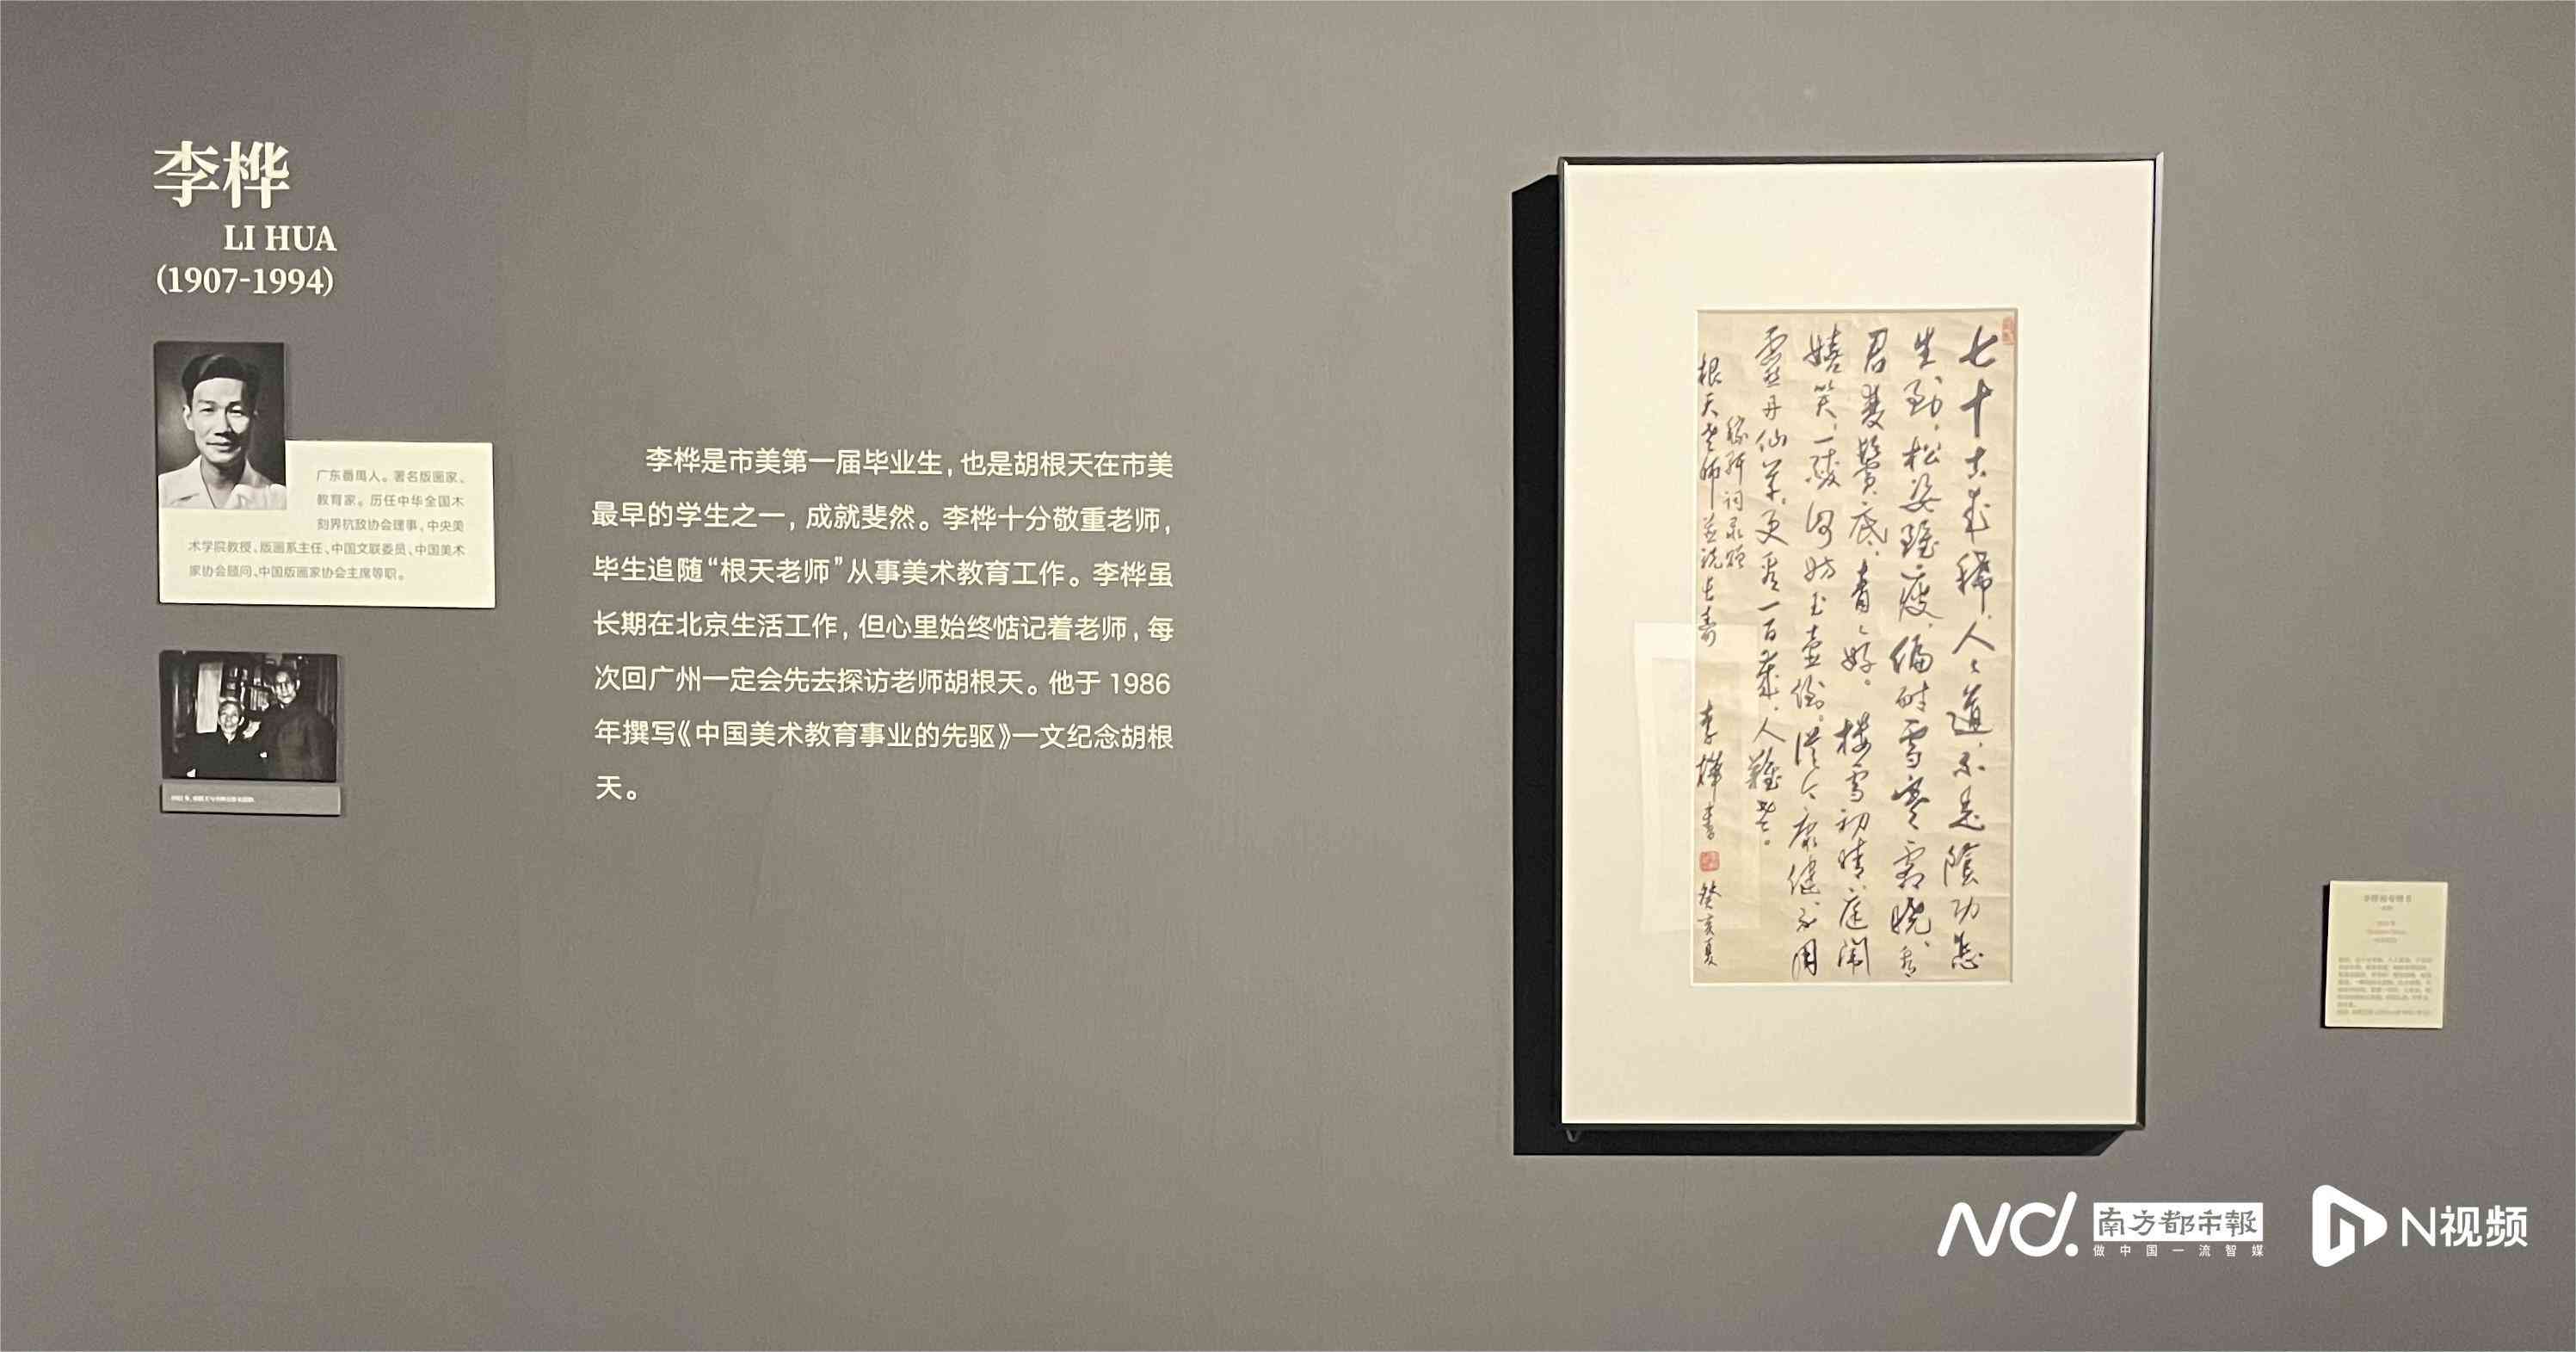 李桦
LI HUA
(1907-1994)
广东番禺人。著名版画家、
教育家。历任中华全国木
刻界抗敌协会理事，中央美
术学院教授、版画系主任、中国文联委员、中国美术
家协会顾问、中国版画家协会主席等职。
李桦是市美第一届毕业生，也是胡根天在市美
最早的学生之一，成就斐然。李桦十分敬重老师，
毕生追随“根天老师”从事美术教育工作。李桦虽
长期在北京生活工作，但心里始终惦记着老师，每
次回广州一定会先去探访老师胡根天。他于 1986
年撰写《中国美术教育事业的先驱》一文纪念胡根
天。
七十古来稀，人人道，不是阴功怎
生到。松姿虽瘦，偏耐雪寒霜晓。看
君双鬓底，青青好。楼雪初晴，庭闱
嬉笑。一醉何妨玉壶倒。从今康健，不用
灵丹仙草。更看一百岁，人难老。
稼轩词录颂
根天老师并祝长寿 李桦书 癸亥夏
南方都市報
做中国一流智媒
N视频